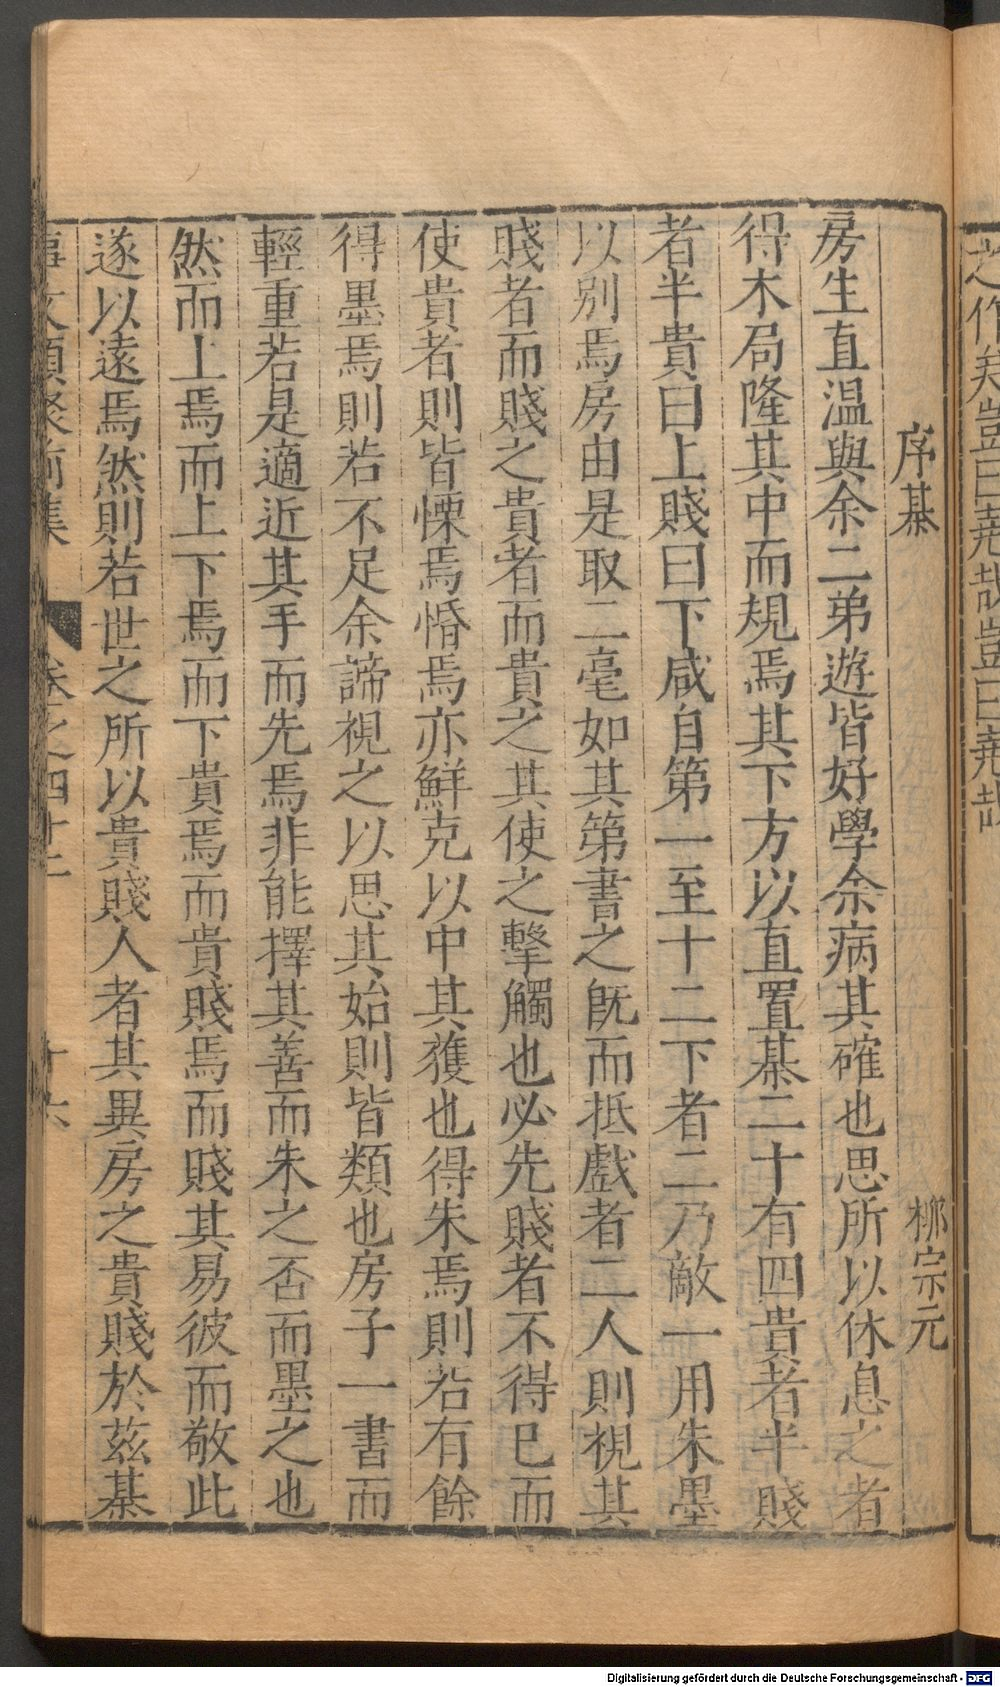 之作矣豈曰堯哉豈曰堯哉
序棊　柳宗元
房生直温與余二弟遊皆好學余病其確也思所以休息之者
得木局隆其中而規焉其下方以直置棊二十有四貴者半賤
者半貴曰上賤曰下咸自第一至十二下者二乃敵一用朱墨
以別焉房由是取二毫如其第書之旣而抵戲者二人則視其
賤者而賤之貴者而貴之其使之擊觸也必先賤者不得已而
使貴者則皆慄焉惛焉亦鮮克以中其獲也得朱焉則若有餘
得墨焉則若不足余諦視之以思其始則皆類也房子一書而
輕重若是適近其手而先焉非能擇其善而朱之否而墨之也
然而上焉而上下焉而下貴焉而貴賤焉而賤其易彼而敬此
遂以遠焉然則若世之所以貴賤人者其異房之貴賤於茲棊
事文類聚前集　卷之四十二　十六
Digitalisierung gefördert durch die Deutsche Forschungsgemeinschaft - DFG